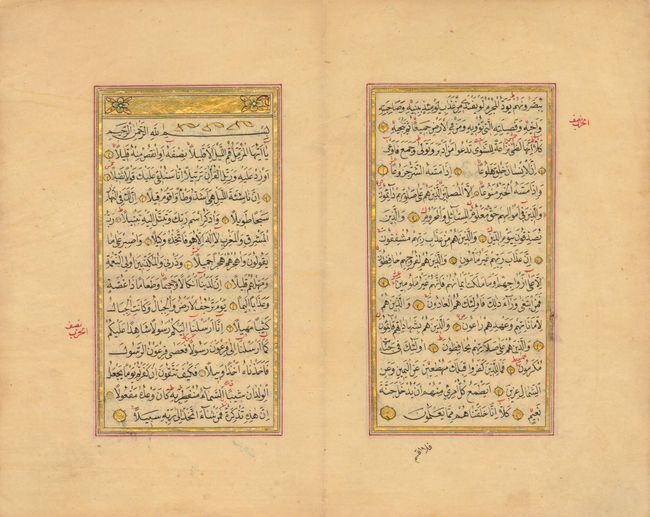 يُبَصَّرُونَهُمْ يَوَدُّ الْمُجْرِمُ لَوْ يَفْتَدِي مِنْ عَذَابِ يَوْمِئِذٍ بِبَنِيهِ وَصَاحِبَتِهِ
وَاَخِيهِ وَفَصِيلَتِهِ الَّتِي تُؤْوِيهِ وَمَنْ فِي الْاَرْضِ جَمِيعًا ثُمَّ يُنْجِيهِ
كَلَّا اِنَّهَا لَظٰى نَزَّاعَةً لِلشَّوٰى تَدْعُوا مَنْ اَدْبَرَ وَتَوَلّٰى وَجَمَعَ فَاَوْعٰى
اِنَّ الْاِنْسَانَ خُلِقَ هَلُوعًا اِذَا مَسَّهُ الشَّرُّ جَزُوعًا
وَاِذَا مَسَّهُ الْخَيْرُ مَنُوعًا اِلَّا الْمُصَلِّينَ الَّذِينَ هُمْ عَلٰى صَلَاتِهِمْ دَائِمُونَ
وَالَّذِينَ فِي اَمْوَالِهِمْ حَقٌّ مَعْلُومٌ لِلسَّائِلِ وَالْمَحْرُومِ وَالَّذِينَ
يُصَدِّقُونَ بِيَوْمِ الدِّينِ وَالَّذِينَ هُمْ مِنْ عَذَابِ رَبِّهِمْ مُشْفِقُونَ
اِنَّ عَذَابَ رَبِّهِمْ غَيْرُ مَأْمُونٍ وَالَّذِينَ هُمْ لِفُرُوجِهِمْ حَافِظُونَ
اِلَّا عَلٰى اَزْوَاجِهِمْ اَوْ مَا مَلَكَتْ اَيْمَانُهُمْ فَاِنَّهُمْ غَيْرُ مَلُومِينَ
فَمَنِ ابْتَغٰى وَرَاءَ ذٰلِكَ فَاُولٰئِكَ هُمُ الْعَادُونَ وَالَّذِينَ هُمْ
لِاَمَانَاتِهِمْ وَعَهْدِهِمْ رَاعُونَ وَالَّذِينَ هُمْ بِشَهَادَاتِهِمْ قَائِمُونَ
وَالَّذِينَ هُمْ عَلٰى صَلَاتِهِمْ يُحَافِظُونَ اُولٰئِكَ فِي جَنَّاتٍ
مُكْرَمُونَ فَمَالِ الَّذِينَ كَفَرُوا قِبَلَكَ مُهْطِعِينَ عَنِ الْيَمِينِ وَعَنِ
الشِّمَالِ عِزِينَ اَيَطْمَعُ كُلُّ امْرِئٍ مِنْهُمْ اَنْ يُدْخَلَ جَنَّةَ
نَعِيمٍ كَلَّا اِنَّا خَلَقْنَاهُمْ مِمَّا يَعْلَمُونَ
فلا اقسم
نصف
الحزب
بِسْمِ اللّٰهِ الرَّحْمٰنِ الرَّحِيمِ
يَا اَيُّهَا الْمُزَّمِّلُ قُمِ الَّيْلَ اِلَّا قَلِيلًا نِصْفَهُ اَوِ انْقُصْ مِنْهُ قَلِيلًا
اَوْ زِدْ عَلَيْهِ وَرَتِّلِ الْقُرْاٰنَ تَرْتِيلًا اِنَّا سَنُلْقِي عَلَيْكَ قَوْلًا ثَقِيلًا
اِنَّ نَاشِئَةَ الَّيْلِ هِيَ اَشَدُّ وَطْأً وَاَقْوَمُ قِيلًا اِنَّ لَكَ فِي النَّهَارِ
سَبْحًا طَوِيلًا وَاذْكُرِ اسْمَ رَبِّكَ وَتَبَتَّلْ اِلَيْهِ تَبْتِيلًا رَبُّ
الْمَشْرِقِ وَالْمَغْرِبِ لَا اِلٰهَ اِلَّا هُوَ فَاتَّخِذْهُ وَكِيلًا وَاصْبِرْ عَلٰى مَا
يَقُولُونَ وَاهْجُرْهُمْ هَجْرًا جَمِيلًا وَذَرْنِي وَالْمُكَذِّبِينَ اُولِي النَّعْمَةِ
وَمَهِّلْهُمْ قَلِيلًا اِنَّ لَدَيْنَا اَنْكَالًا وَجَحِيمًا وَطَعَامًا ذَا غُصَّةٍ
وَعَذَابًا اَلِيمًا يَوْمَ تَرْجُفُ الْاَرْضُ وَالْجِبَالُ وَكَانَتِ الْجِبَالُ
كَثِيبًا مَهِيلًا اِنَّا اَرْسَلْنَا اِلَيْكُمْ رَسُولًا شَاهِدًا عَلَيْكُمْ
كَمَا اَرْسَلْنَا اِلٰى فِرْعَوْنَ رَسُولًا فَعَصٰى فِرْعَوْنُ الرَّسُولَ
فَاَخَذْنَاهُ اَخْذًا وَبِيلًا فَكَيْفَ تَتَّقُونَ اِنْ كَفَرْتُمْ يَوْمًا يَجْعَلُ
الْوِلْدَانَ شِيبًا السَّمَاءُ مُنْفَطِرٌ بِهِ كَانَ وَعْدُهُ مَفْعُولًا
اِنَّ هٰذِهِ تَذْكِرَةٌ فَمَنْ شَاءَ اتَّخَذَ اِلٰى رَبِّهِ سَبِيلًا
نصف
الحزب